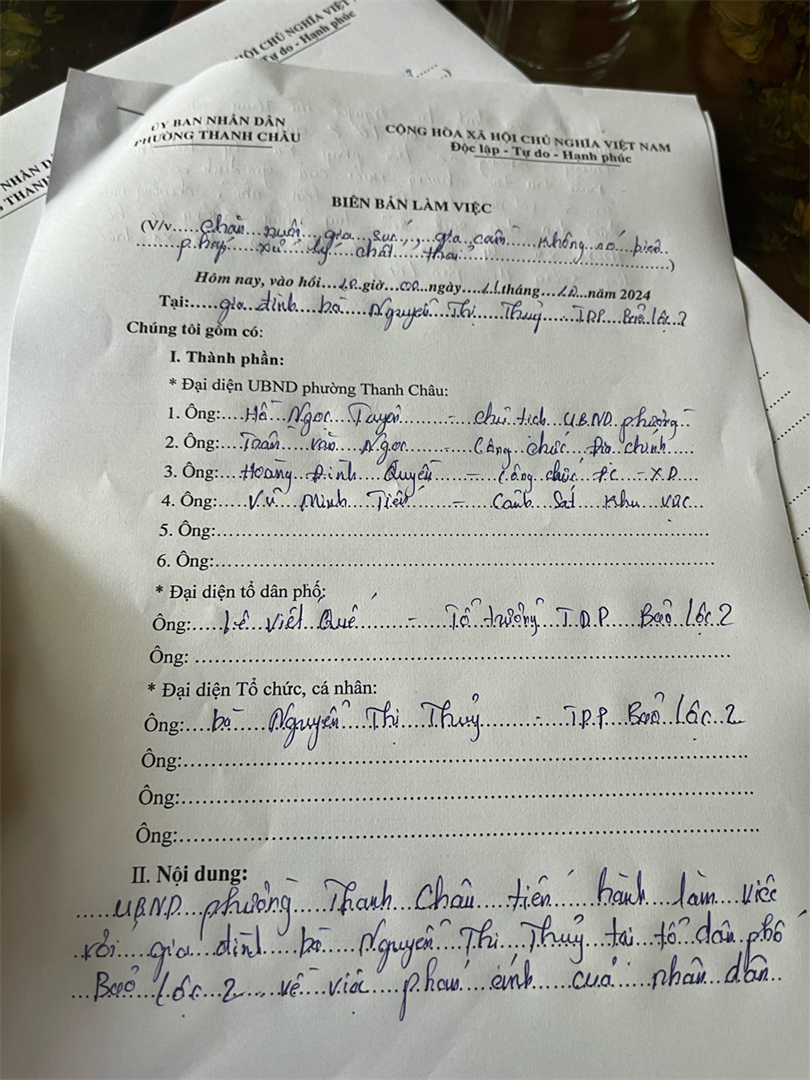 HỘI CHỦ NGHĨA VIỆT
Tự do - Hạnh phúc
NHÂN D
G THANH
ỦY BAN NHÂN DÂN
PHƯỜNG THANH CHÂU
CỘNG HÒA XÃ HỘI CHỦ NGHĨA VIỆT NAM
Độc lập - Tự do - Hạnh phúc
BIÊN BẢN LÀM VIỆC
(V/v.....chăn nuôi gia súc, gia cầm không có biện
pháp xử lý chất thải..............................)
Hôm nay, vào hồi... giờ..00..ngày..11..tháng..12..năm 2024
Tại:.....gia đình bà Nguyễn Thị Thuỷ.....TDP Bảo Lộc 2
Chúng tôi gồm có:
I. Thành phần:
* Đại diện UBND phường Thanh Châu:
1. Ông:....Hồ Ngọc Tuyên - Chủ tịch UBND phường
2. Ông:....Trần Văn Ngọc - Công chức Địa chính
3. Ông:....Hoàng Đình Quyền - Công chức ĐC - XD
4. Ông:....Vũ Minh Tiến - Cảnh Sát khu vực
5. Ông:..............................
6. Ông:..............................
* Đại diện tổ dân phố:
Ông:.....Lê Viết Quế - Tổ trưởng T.D.P Bảo Lộc 2
Ông: ..............................
* Đại diện Tổ chức, cá nhân:
Ông:....bà Nguyễn Thị Thuỷ - T.D.P Bảo Lộc 2
Ông:..............................
Ông:..............................
Ông:..............................
II. Nội dung:
.....UBND phường Thanh Châu tiến hành làm việc
với gia đình bà Nguyễn Thị Thuỷ tại tổ dân phố
Bảo Lộc 2 về việc phản ánh của nhân dân